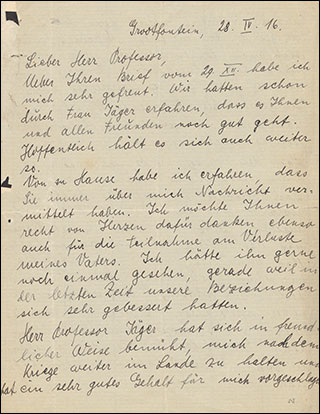 Grootfontein, 28. IV. 16.
Lieber Herr Professor,
Ueber Ihren Brief vom 29. XII. habe ich
mich sehr gefreut. Wir hatten schon
durch Frau Jäger erfahren, dass es Ihnen
und allen Freunden noch gut geht.
Hoffentlich hält es sich auch weiter
so.
Von zu Hause habe ich erfahren, dass
Sie immer über mich Nachricht ver-
mittelt haben. Ich möchte Ihnen
recht von Herzen dafür danken ebenso
auch für die Teilnahme am Verluste
meines Vaters. Ich hätte ihn gerne
noch einmal gesehen, gerade weil in
der letzten Zeit unsere Beziehungen
sich sehr gebessert hatten.
Herr Professor Jäger hat sich in freund-
licher Weise bemüht, mich nach dem
Kriege weiter im Lande zu halten und
hat ein sehr gutes Gehalt für mich vorgeschlagen